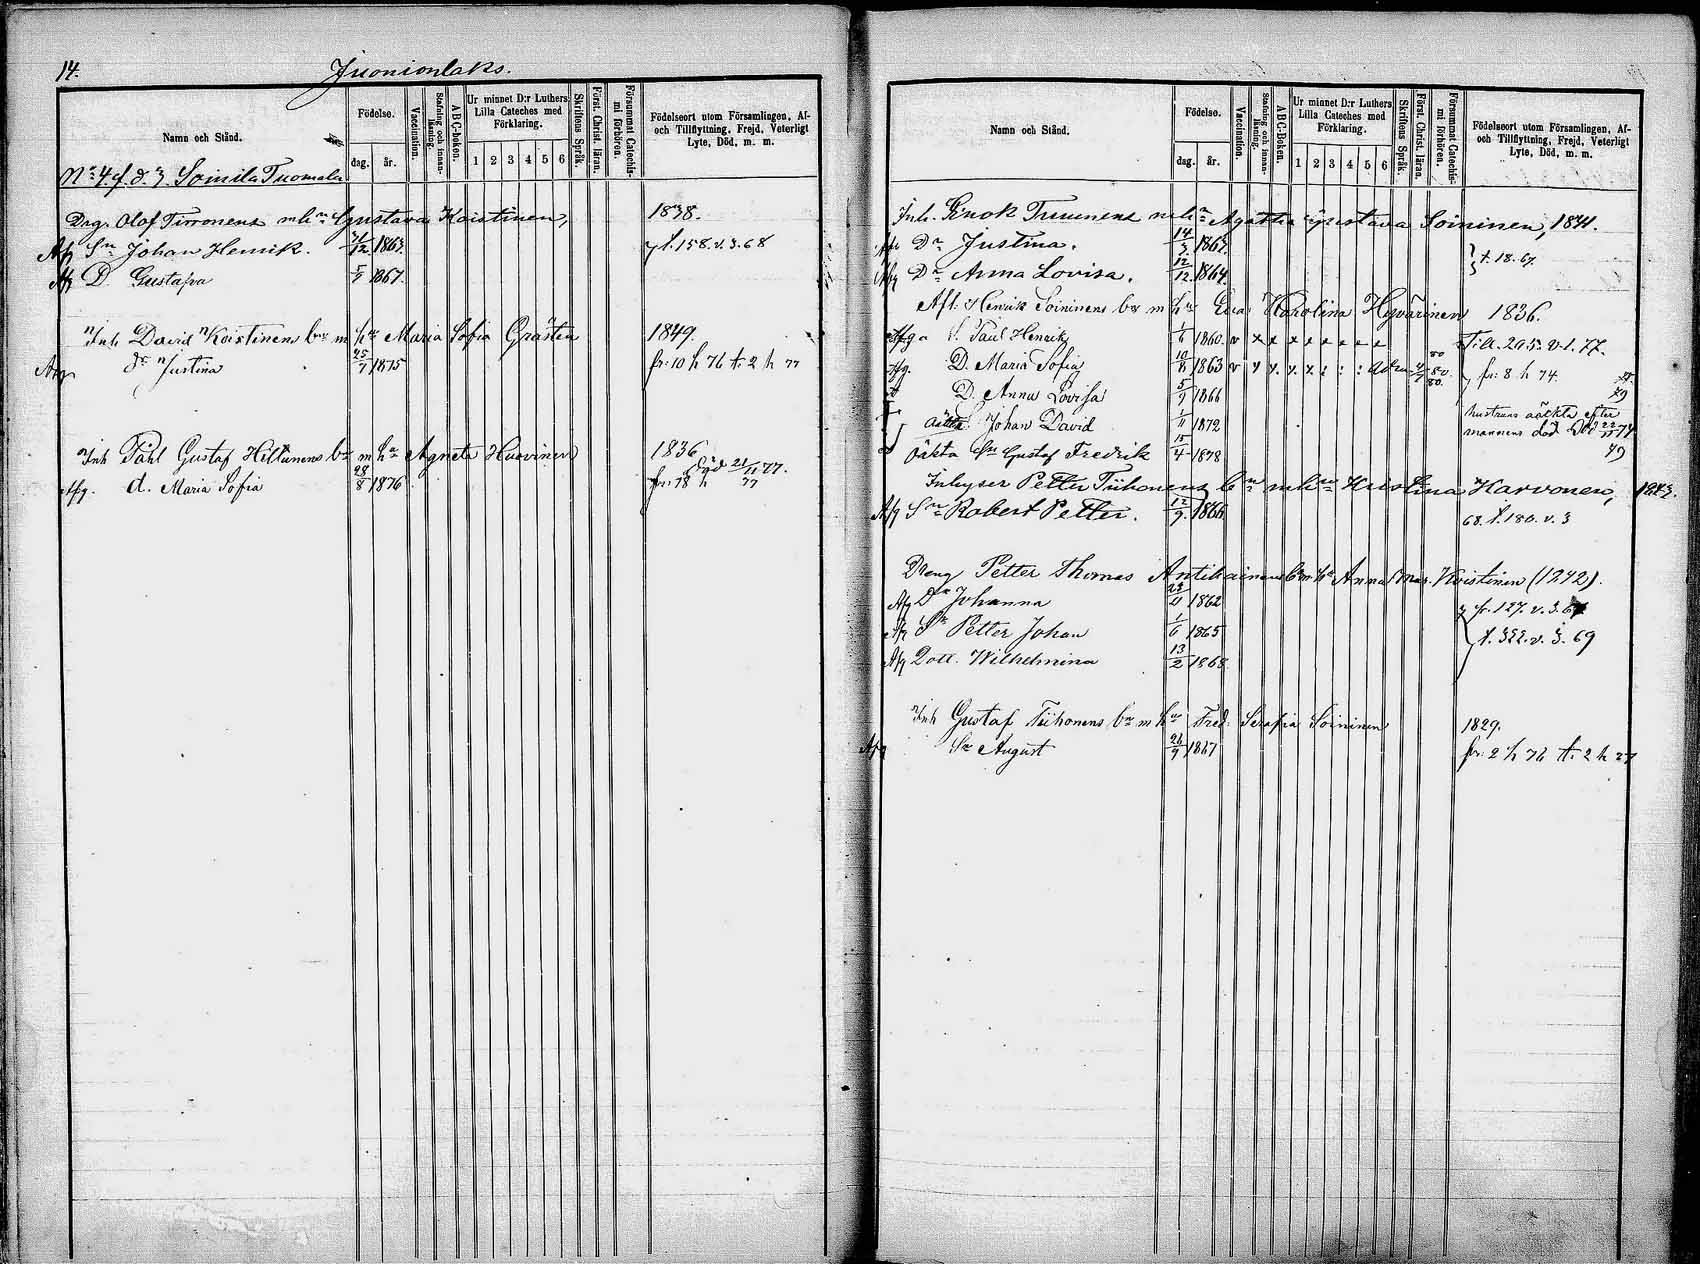 14.
Juonionlaks.
Namn och Stånd.
Födelse.
dag.
år.
Vaccination.
Stafning och innan-läsning.
ABC-boken.
Ur minnet D:r Luthers
Lilla Cateches med
Förklaring.
1 2 3 4 5 6
Skriftens Språk.
Först. Christ. läran.
Försummat Catechis-
mi förhören.
Födelseort utom Församlingen, Af-
och Tillflyttning, Frejd, Veterligt
Lyte, Död, m. m.
No 4. f. d. 3. Soinila Tuomala
Drg. Olof Timonens mhn Gustava Koistinen, 1838.
Afg Sn Johan Henrik. 1863. t. 158. v. 3. 68
Afg D. Gustafva 5/9 1867.
Inh David Koistinens bn m hn Maria Sofia Gråsten 1849.
Afg dr Justina 25/7 1875 fr: 10 h 76 t. 2 h 77
Inh Påhl Gustaf Hiltunens bn m hn Agneta Huovinen 1836
Afg. d. Maria Sofia 28/8 1876 fr: 78 h 77 död 21/11 77.
Namn och Stånd.
Födelse.
dag.
år.
Vaccination.
Stafning och innan-läsning.
ABC-Boken.
Ur minnet D:r Luthers
Lilla Cateches med
Förklaring.
1 2 3 4 5 6
Skriftens Språk.
Först. Christ. läran.
Försummat Catechis-
mi förhören.
Födelseort utom Församlingen, Af-
och Tillflyttning, Frejd, Veterligt
Lyte, Död, m. m.
Inh. Enok Truunens mhn Agatha Gustava Soininen, 1841.
Afg Dr Justina. 14/3 1863.
t. 18. 67.
Afg Dr Anna Lovisa. 12/12 1864.
Afl. Henrik Soininens bn m hn Eva Karolina Hyvärinen 1836.
Afg S. Paul Henrik 1/6 1860. v x x x x x x x x Till. 295. v. 1. 77.
Afg. D. Maria Sofia 10/8 1863 v fr: 8 h 74.
D. Anna Lovisa 5/9 1866
Johan David 1/11 1872 hustruns oäkta efter
mannens död
Oäkta Sn Gustaf Fredrik 15/4 1878
Inhyser Petter Tiihonens bn mhn Kristina Karvonen, 1843.
Afg Sn Robert Petter. 12/9. 1866 68. t. 180. v. 3
Dreng Petter Thomas Antikainens bn m hn Anna Mar. Koistinen (1242).
Afg Dr Johanna 1862 fr. 127. v. 3. 67
Afg Sn Petter Johan 1/6 1865 t. 322. v. 3. 69
Afg Dott. Wilhelmina 13/2 1868.
Inh Gustaf Tiihonens bn m hn Fred. Serafia Soininen 1829.
Afg Sn August 26/9 1867 fr: 2 h 76 t. 2 h 77